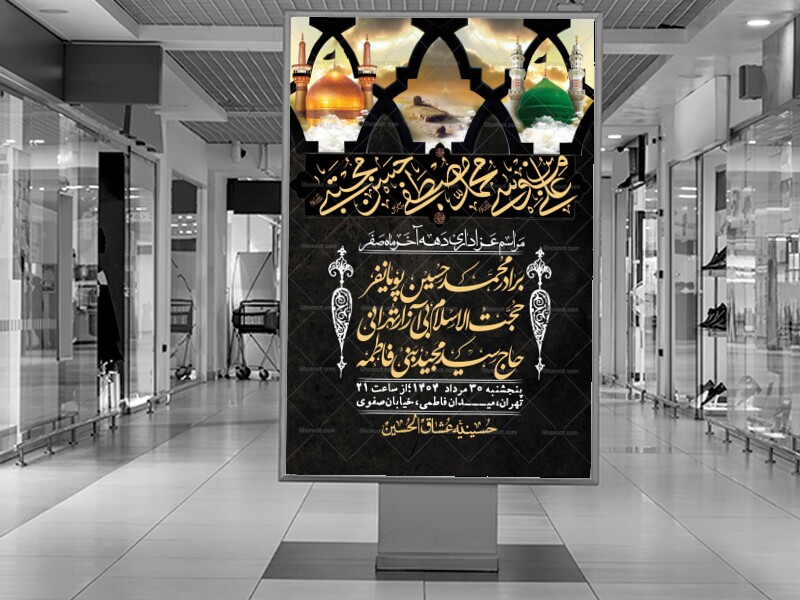 علی بن موسی محمد مصطفی حسن مجتبی
مراسم عزاداری دهه آخر ماه صفر
برادر محمد حسین پویانفر
حجت الاسلام بی آزار تهرانی
حاج سید مجید بنی فاطمه
پنجشنبه ۳۰ مرداد ۱۴۰۴ از ساعت ۲۱
تهران، میدان فاطمی، خیابان صفوی
حسینیه عشاق الحسین